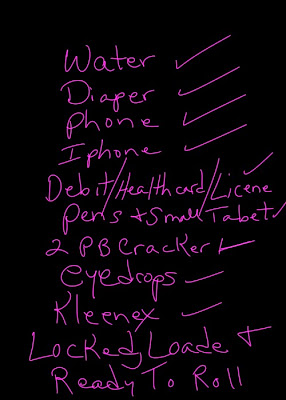 Water ✓
Diaper ✓
Phone ✓
Iphone ✓
Debit/Healthcard/Licene ✓
Pens + Small Tabet ✓
2 PB Cracker ✓
eyedrops ✓
Kleenex ✓
Locked, Loade +
Ready To Roll